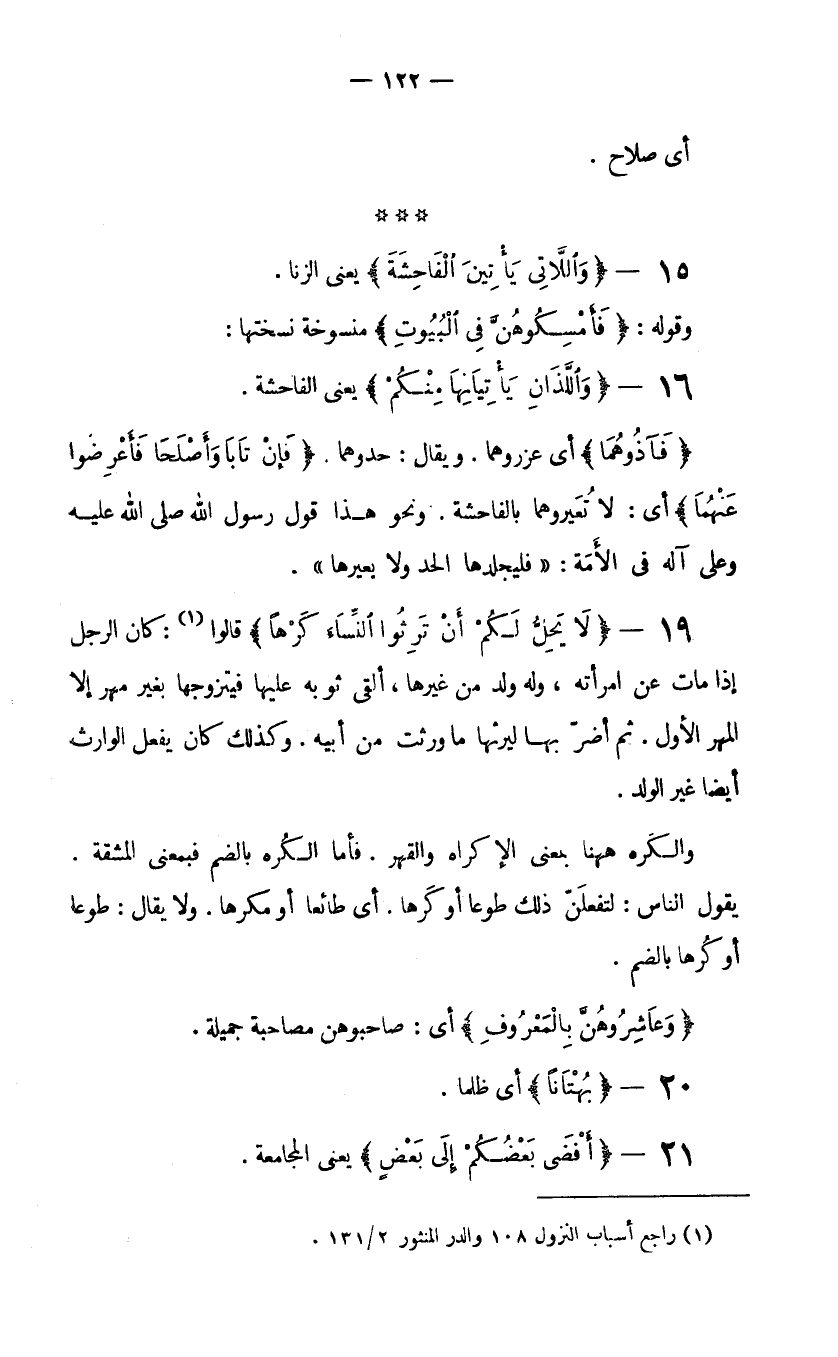 — ١٢٢ —
أى صلاح .
***
١٥ — ﴿ وَٱللَّاتِى يَأْتِينَ ٱلْفَاحِشَةَ ﴾ يعنى الزنا .
وقوله : ﴿ فَأَمْسِكُوهُنَّ فِى ٱلْبُيُوتِ ﴾ منسوخة نسختها :
١٦ — ﴿ وَٱللَّذَانِ يَأْتِيَانِهَا مِنْكُمْ ﴾ يعنى الفاحشة .
﴿ فَآذُوهُمَا ﴾ أى عزروهما . ويقال : حدوهما . ﴿ فَإِنْ تَابَا وَأَصْلَحَا فَأَعْرِضُوا
عَنْهُمَا ﴾ أى : لا تُعَيروهما بالفاحشة . ونحو هـذا قول رسول الله صلى الله عليـه
وعلى آله فى الأَمَة : « فليجلدها الحد ولا يعيرها » .
١٩ — ﴿ لَا يَحِلُّ لَـكُمْ أَنْ تَرِثُوا ٱلنِّسَاءَ كَرْهاً ﴾ قالوا (١) : كان الرجل
إذا مات عن امرأته ، وله ولد من غيرها ، ألقى ثوبه عليها فيتزوجها بغير مهر إلا
المهر الأول . ثم أضرّ بهـا ليرثها ما ورثت من أبيه . وكذلك كان يفعل الوارث
أيضا غير الولد .
والـكَره ههنا بمعنى الإكراه والقهر . فأما الـكُره بالضم فبمعنى المشقة .
يقول الناس : لتفعلَنّ ذلك طوعا أو كَرها . أى طائعا أو مكرها . ولا يقال : طوعا
أو كُرها بالضم .
﴿ وَعَاشِرُوهُنَّ بِالْمَعْرُوفِ ﴾ أى : صاحبوهن مصاحبة جميلة .
٢٠ — ﴿ بُهْتَاناً ﴾ أى ظلما .
٢١ — ﴿ أَفْضَى بَعْضُـكُمْ إِلَى بَعْضٍ ﴾ يعنى المجامعة .
(١) راجع أسباب النزول ١٠٨ والدر المنثور ١٣١/٢ .